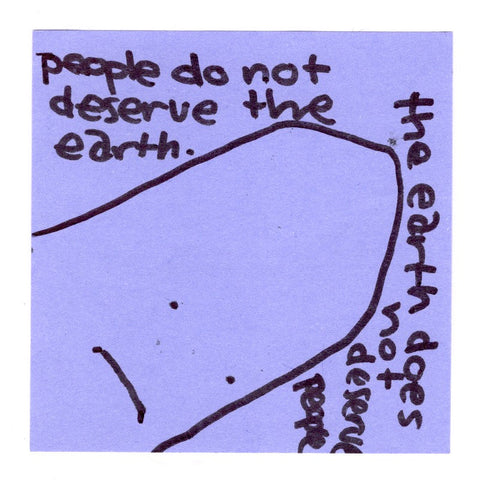 people do not
deserve the
earth.
the earth does
not
deserve
people